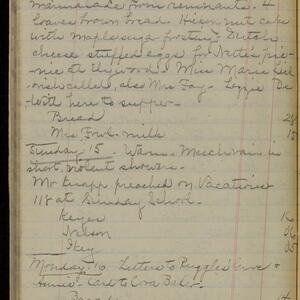 marmalade from remnants. 4
loaves brown bread. Hickory nut cake
with maple sugar frosting. Dutch
cheese stuffed eggs for Nettie's pic-
nic at Miss Marie
called, also Mrs Fay. Lizzie De
With here to supper.
Bread 28
Mrs Fowl. milk 15
Sunday 15. Warm. Much rain in
short, violent showers.
Mr Knapp preached on Vacations
118 at Sunday School.
Keyes
Nelson 06
Ikey 05
Monday 16. Letters to Ruggles' &
Card to Cora